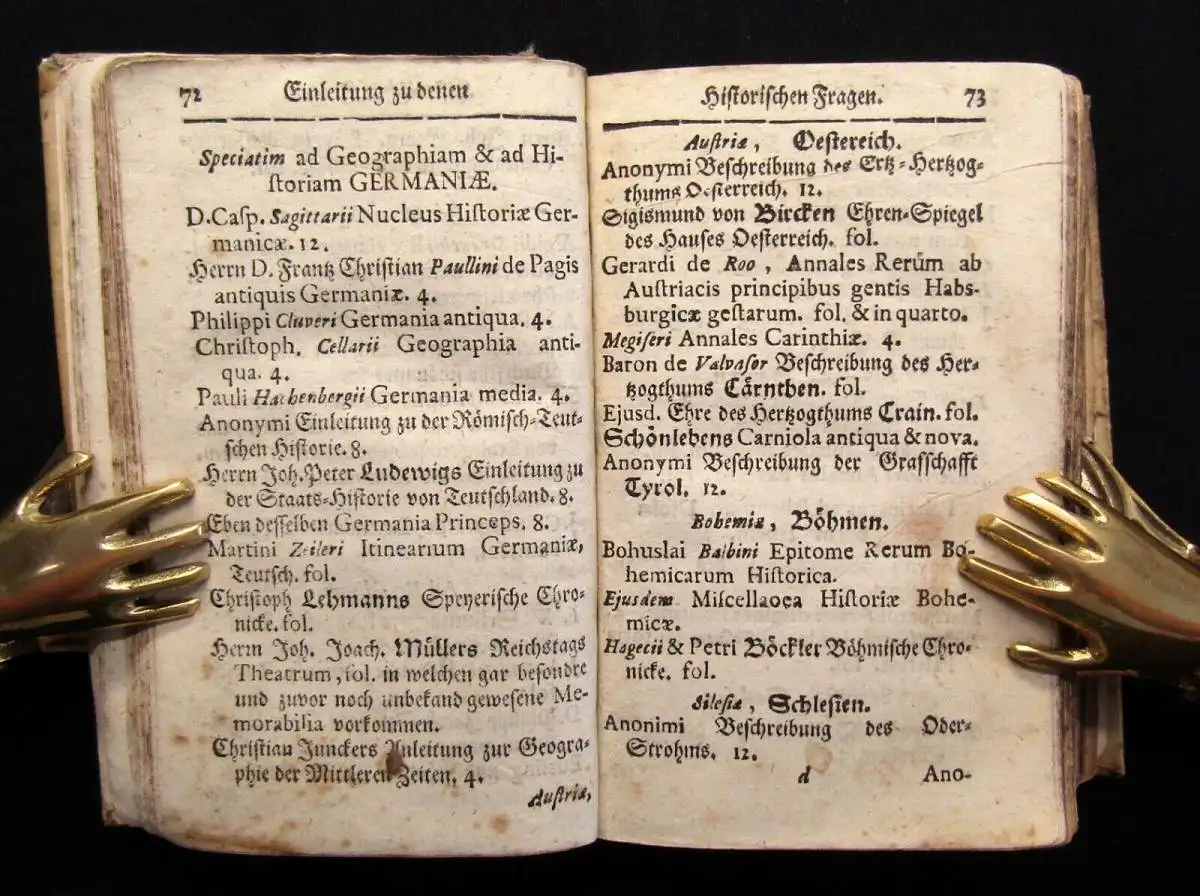 72 Einleitung zu denen
Speciatim ad Geographiam & ad Hi-
ſtoriam GERMANIÆ.
D. Caſp. Sagittarii Nucleus Hiſtoriæ Ger-
manicæ. 12.
Herrn D. Frantz Chriſtian Paullini de Pagis
antiquis Germaniæ. 4.
Philippi Cluveri Germania antiqua. 4.
Chriſtoph. Cellarii Geographia anti-
qua. 4.
Pauli Hachenbergii Germania media. 4.
Anonymi Einleitung zu der Römiſch-Teut-
ſchen Hiſtorie. 8.
Herrn Joh. Peter Ludewigs Einleitung zu
der Staats-Hiſtorie von Teutſchland. 8.
Eben deſſelben Germania Princeps. 8.
Martini Zeileri Itinearium Germaniæ,
Teutſch. fol.
Chriſtoph Lehmanns Speyeriſche Chro-
nicke. fol.
Herrn Joh. Joach. Müllers Reichstags
Theatrum, fol. in welchen gar beſondre
und zuvor noch unbekand geweſene Me-
morabilia vorkommen.
Chriſtian Junckers Anleitung zur Geogra-
phie der Mittleren Zeiten. 4.
Auſtriæ,
Hiſtoriſchen Fragen. 73
Auſtriæ, Oeſtereich.
Anonymi Beſchreibung des Ertz-Hertzog-
thums Oeſterreich. 12.
Sigismund von Bircken Ehren-Spiegel
des Hauſes Oeſterreich. fol.
Gerardi de Roo, Annales Rerum ab
Auſtriacis principibus gentis Habs-
burgicæ geſtarum. fol. & in quarto.
Megiſeri Annales Carinthiæ. 4.
Baron de Valvaſor Beſchreibung des Her-
tzogthums Cärnthen. fol.
Ejusd. Ehre des Hertzogthums Crain. fol.
Schönlebens Carniola antiqua & nova.
Anonymi Beſchreibung der Graffſchafft
Tyrol. 12.
Bohemiæ, Böhmen.
Bohuslai Balbini Epitome Rerum Bo-
hemicarum Hiſtorica.
Ejusdem Miſcellaoea Hiſtoriæ Bohe-
micæ.
Hagecii & Petri Böckler Böhmiſche Chro-
nicke. fol.
Sileſiæ, Schleſien.
Anonimi Beſchreibung des Oder-
Strohms. 12.
d Ano-